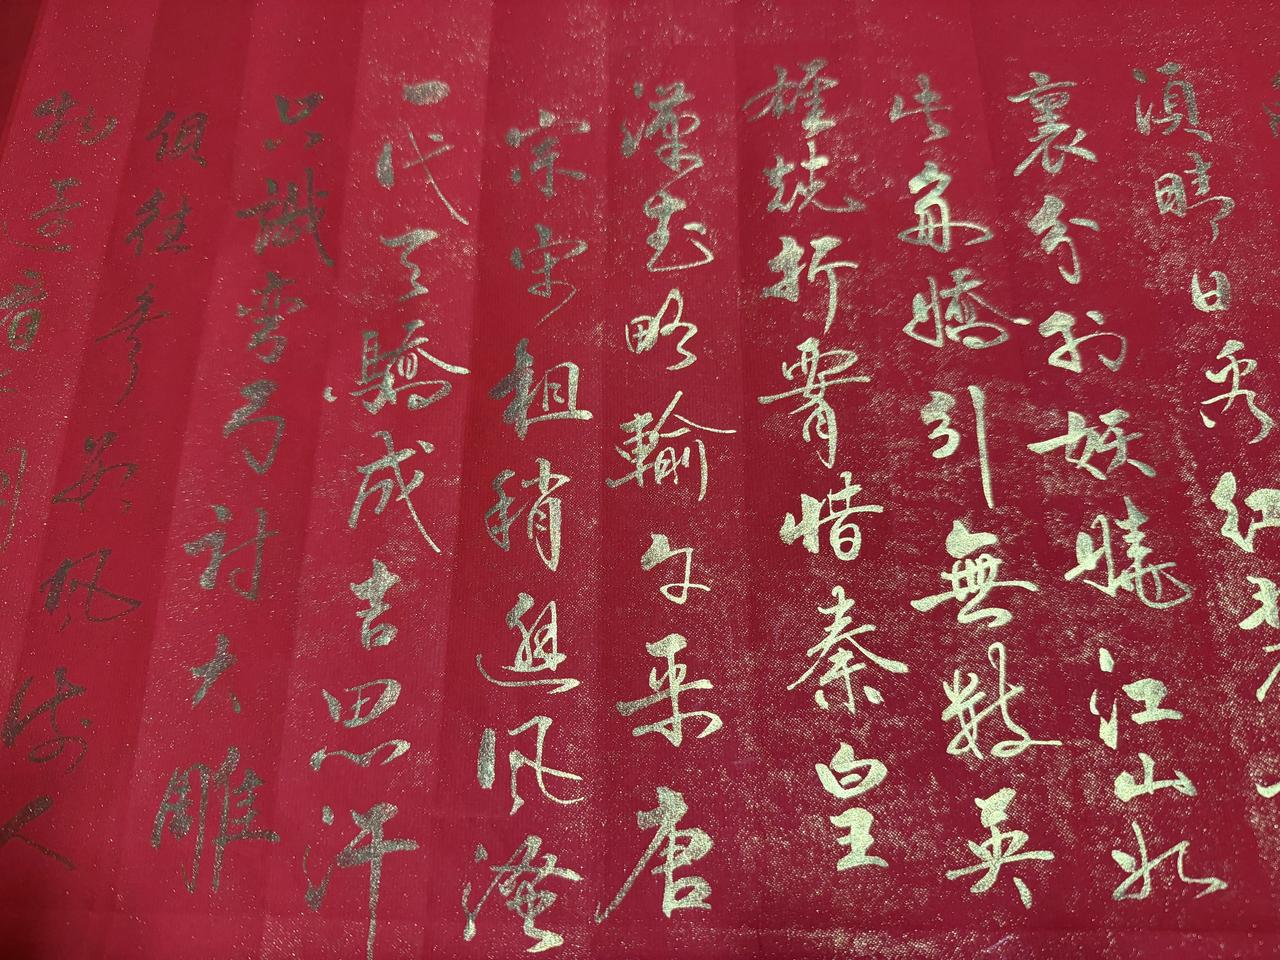 須晴日看红装
裏分外妖嬈江山如
此多嬌引無數英
雄競折腰惜秦皇
漢武略輸文采唐
宗宋祖稍遜風騷
一代天驕成吉思汗
只識彎弓射大雕
俱往矣数風流人
物還看今朝